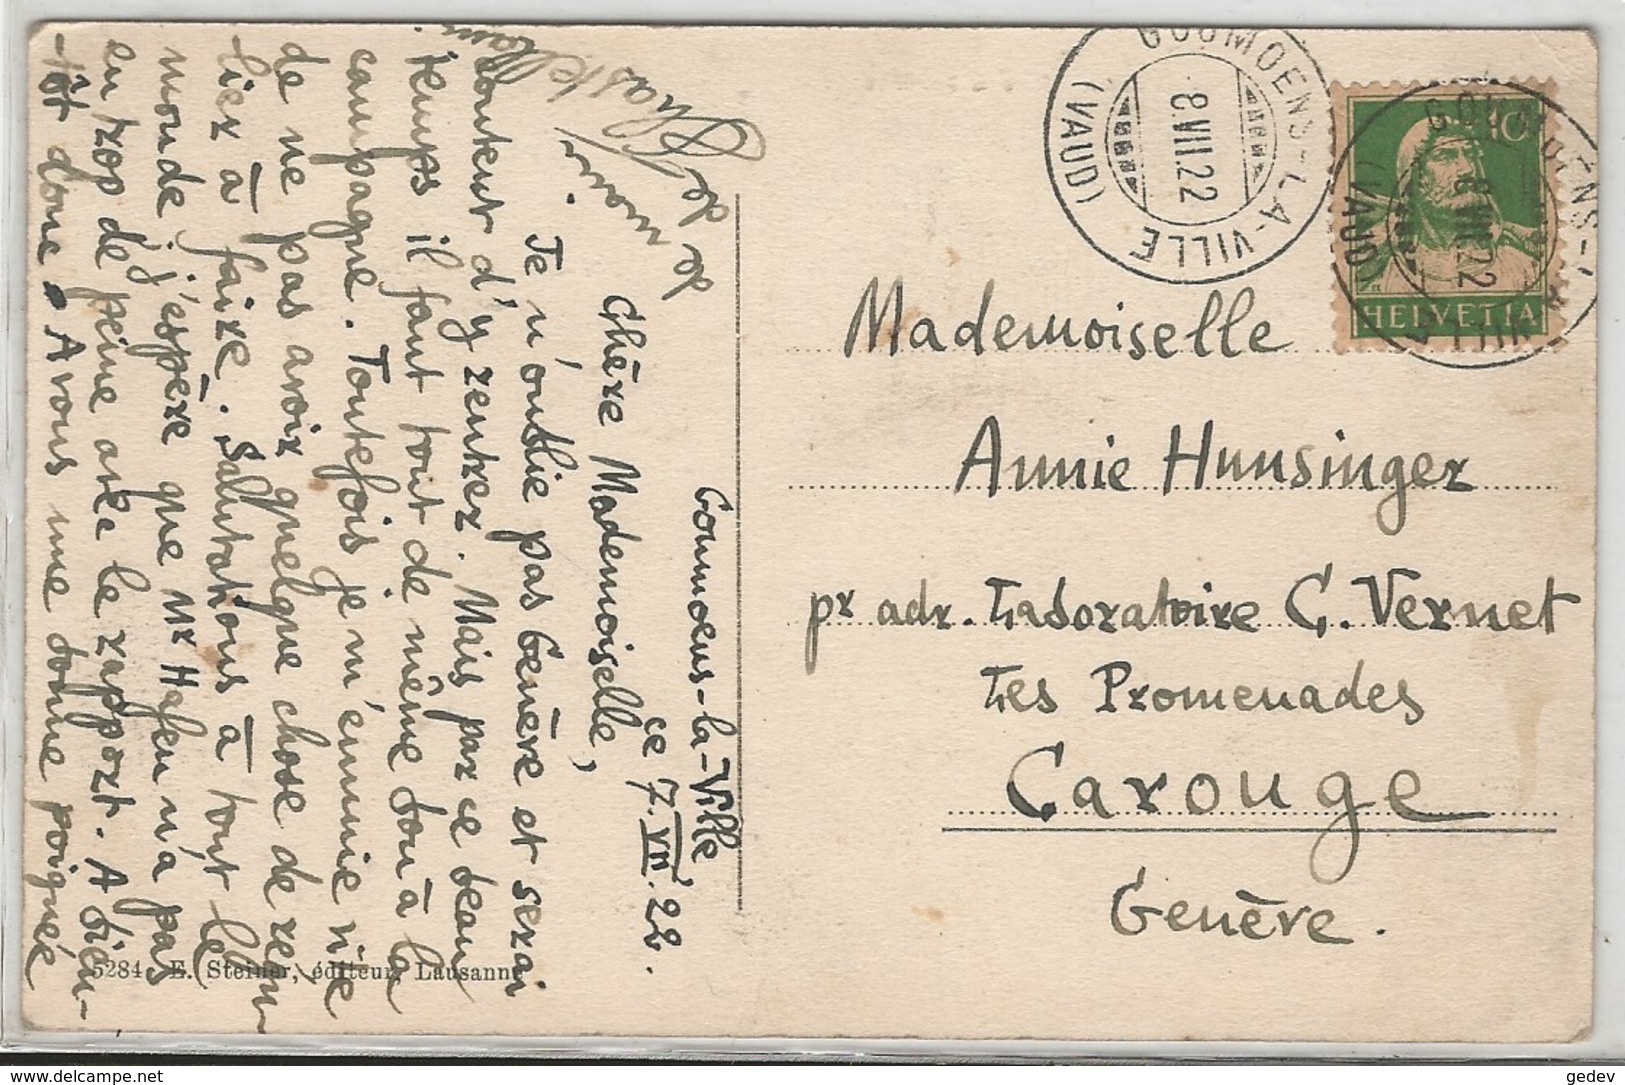 Goumoens-la-Ville
ce 7.VII.22.
Chère Mademoiselle,
Je n'oublie pas Genève et serai
content d'y rentrer. Mais par ce beau
temps il faut tout de même bon à la
campagne. Toutefois je m'ennuie
de ne pas avoir quelque chose de
à faire. Salutations à tout le
monde j'espère que Mr Hafen n'a pas
en trop de peine avec le rapport. A bien-
-tôt donc. Avous une bonne poignée
de
main.
GOUMOENS-LA-VILLE
(VAUD)
8.VII.22
10
HELVETIA
GOUMOENS-LA-VILLE
(VAUD)
8.VII.22
Mademoiselle
Annie Hunsinger
pr adr. Laboratoire C. Vernet
Les Promenades
Carouge
Genève.
5284 E. Steiner, éditeur, Lausanne
delcampe.net
gedev